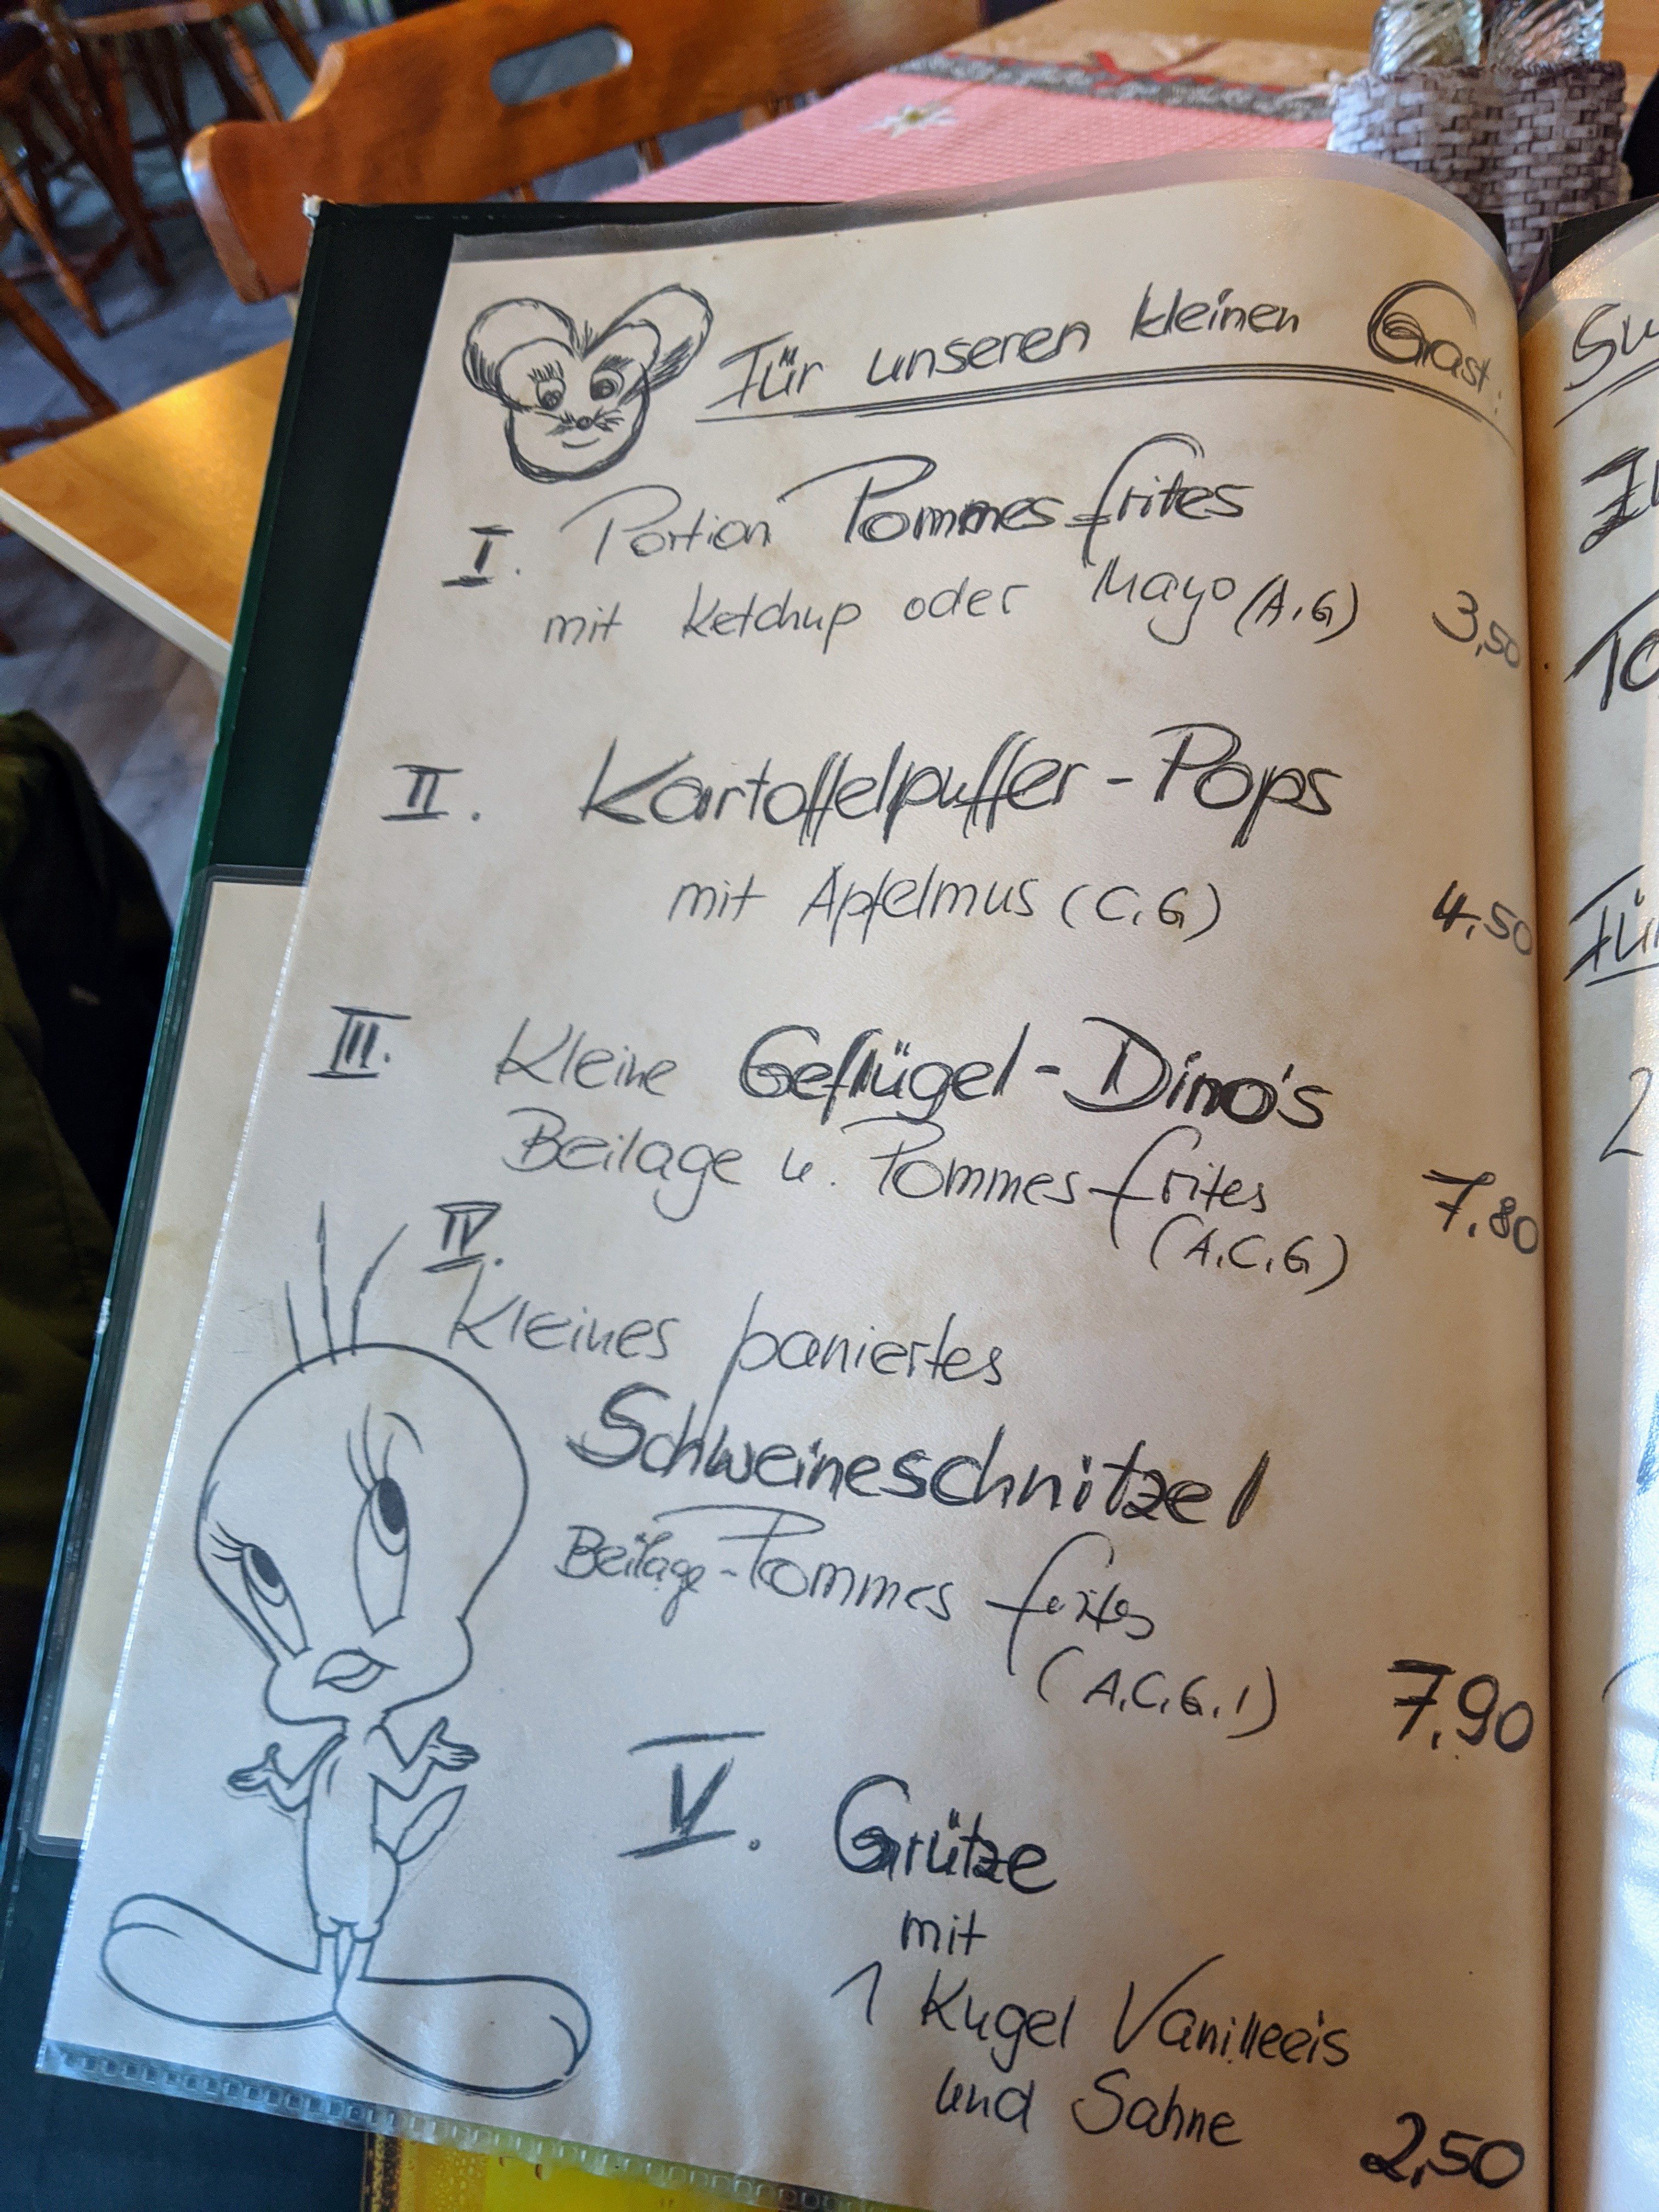 Für unseren kleinen Gast:
I. Portion Pommes frites
mit Ketchup oder Mayo (A,G) 3,50
II. Kartoffelpuffer-Pops
mit Apfelmus (C,G) 4,50
III. Kleine Geflügel-Dino's
Beilage u. Pommes frites 7,80
(A,C,G)
IV.
Kleines paniertes
Schweineschnitzel
Beilage-Pommes frites
(A,C,G,1) 7,90
V. Grütze
mit
1 Kugel Vanilleeis
und Sahne 2,50